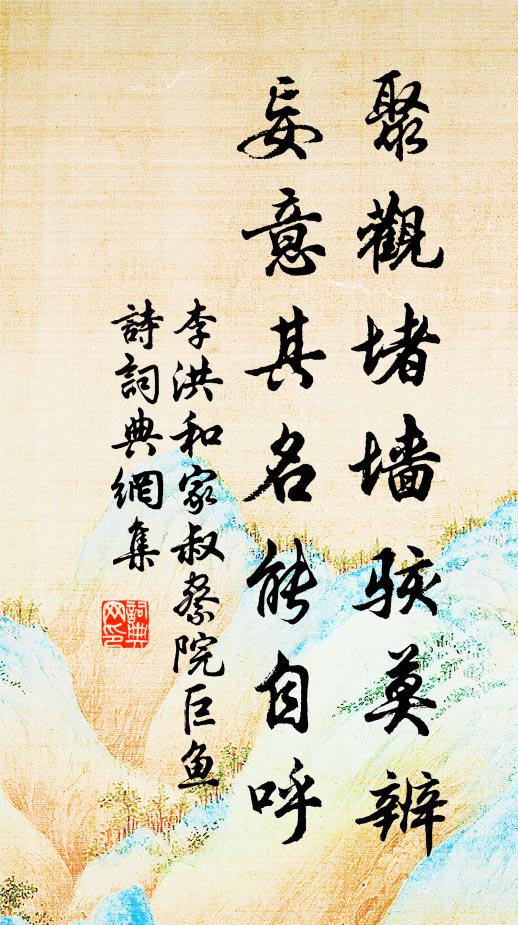 聚觀堵墙駭莫辨
妄意其名能自呼
李洪和家叔察院巨鱼
詩詞典網集
詞典网印